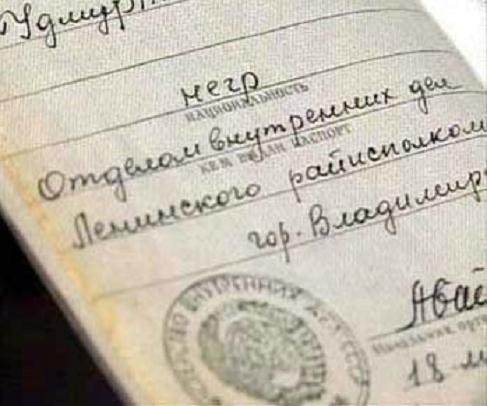 негр
национальность
Отделом внутренних дел
кем выдан паспорт
Ленинского райисполком
гор. Владимир
18